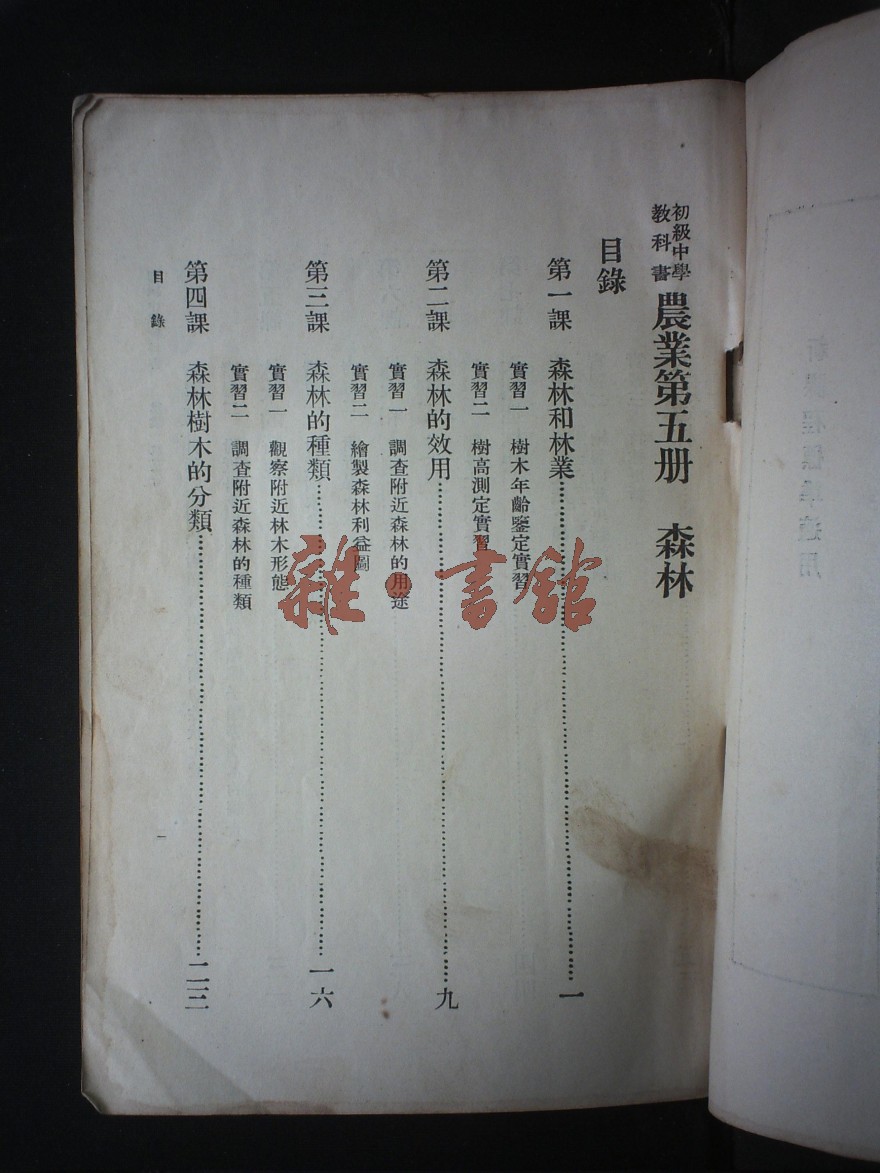 初級中學
教科書
農業第五册　森林
目錄
第一課　森林和林業……一
實習一　樹木年齡鑒定實習
實習二　樹高測定實習
第二課　森林的效用……九
實習一　調查附近森林的用途
實習二　繪製森林利益圖
第三課　森林的種類……一六
實習一　觀察附近林木形態
實習二　調查附近森林的種類
第四課　森林樹木的分類……二三
目錄
一
雜·書館